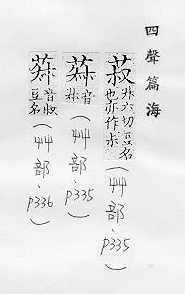 四聲篇海
菽升六切豆名也亦作尗(艸部、p335)
音尗(艸部、p335)
音叔豆名(艸部、p336)